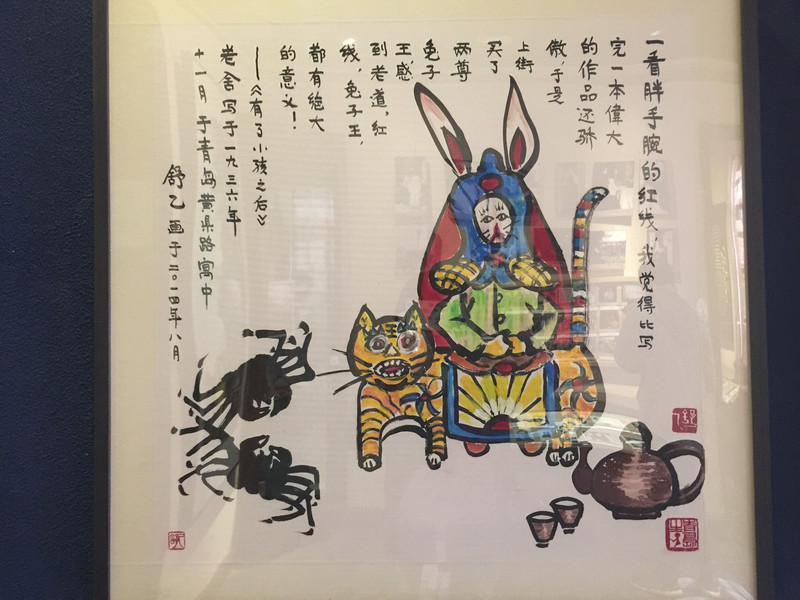 一看胖手腕的红线,我觉得比写
完一本偉大
的作品还骄
傲,于是
上街
买了
两尊
兔子
王,感
到老道,红
线,兔子王,
都有绝大
的意义!
——《有了小孩之后》
老舍写于一九三六年
十一月于青岛黄県路寓中
舒乙画于二〇一四年八月